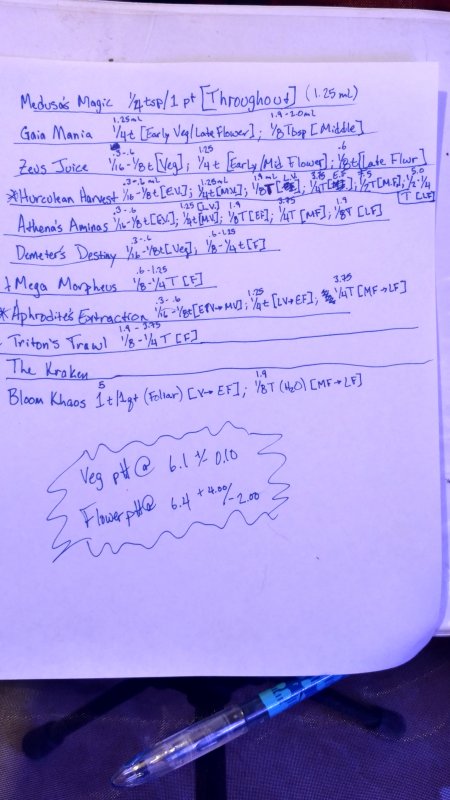 Medusa's Magic 1/4 tsp/1 pt [Throughout] (1.25 mL)
1.25mL 1.9-2.0mL
Gaia Mania 1/4t [Early Veg/Late Flower]; 1/8 Tbsp [Middle]
.3-.6 1.25 .6
Zeus Juice 1/16-1/8t [Veg]; 1/4t [Early/Mid Flower]; 1/8t [Late Flwr]
.3-.6mL 1.25mL 1.9mL L.V. 3.75 E.F. 7.5 5.0
*Hurculean Harvest 1/16-1/8t [E.V.]; 1/4t [M.V.]; 1/8T; 1/4T; 1/2T [M.F.]; 1/2-1/4
T [LF]
.3-.6 1.25 [L.V.] 1.9 3.75 1.9
Athena's Aminas 1/16-1/8t [E.V.]; 1/4t [MV]; 1/8T [EF]; 1/4T [MF]; 1/8T [LF]
.3-.6 .6-1.25
Demeter's Destiny 1/16-1/8t [Veg]; 1/8-1/4t [F]
.6-1.25
† Mega Morpheus 1/8-1/4T [F]
.3-.6 1.25 3.75
*Aphrodite's Extraction 1/16-1/8t [EV→MV]; 1/4t [LV→EF]; 1/4T [MF→LF]
1.9-3.75
- Triton's Trawl 1/8-1/4T [F]
The Kraken
5 1.9
Bloom Khaos 1t/1qt (Foliar) [LV→EF]; 1/8T (H2O) [MF→LF]
Veg pH @ 6.1 +/- 0.10
Flower pH @ 6.4 +4.00/-2.00